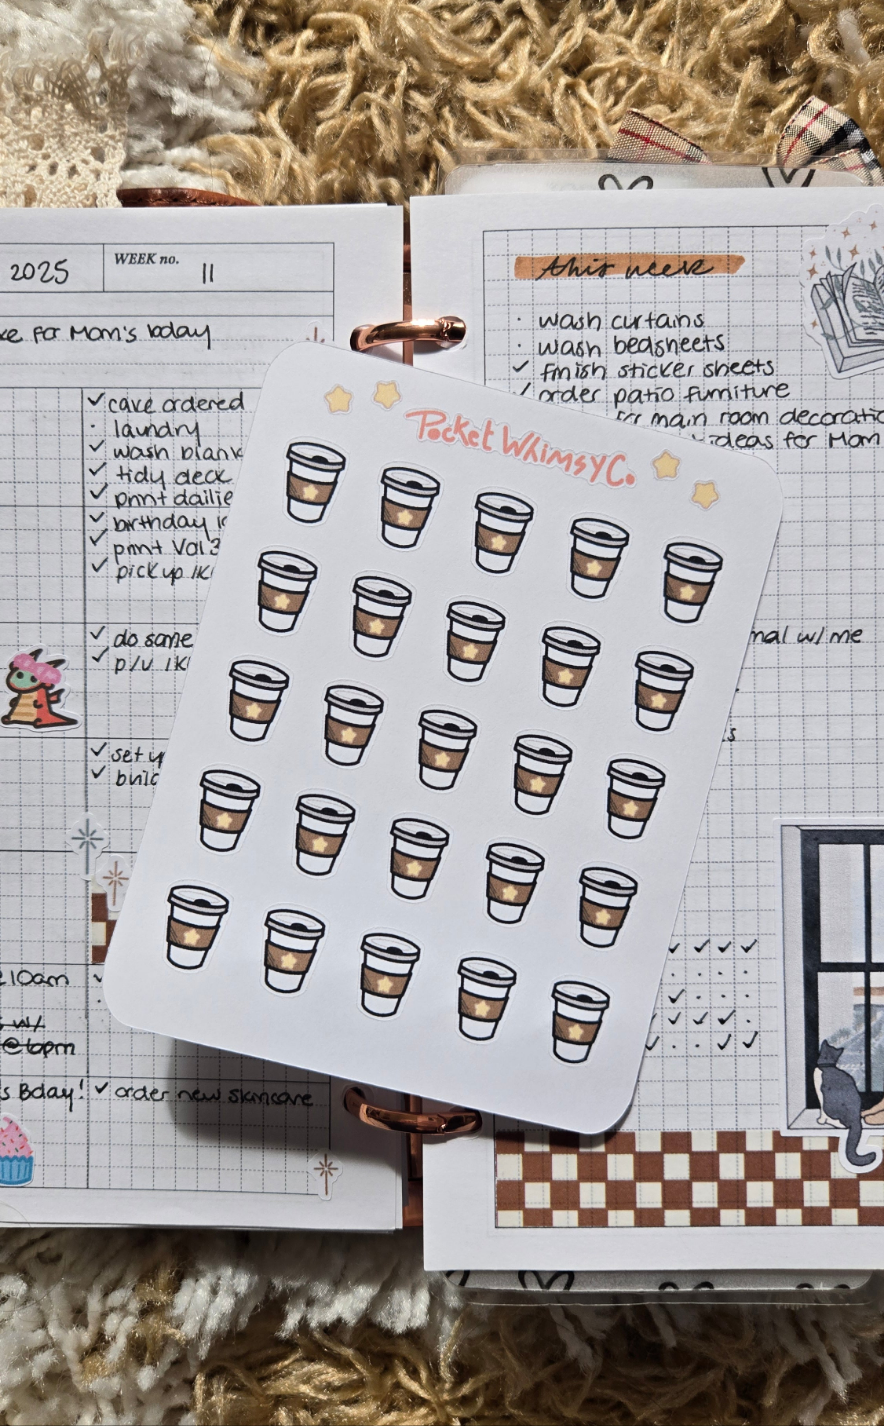 2025
WEEK no. 11
ke for Mom's bday
✓ cake ordered
· laundry
✓ wash blank
✓ tidy deck
✓ print dailie
✓ birthday
✓ print Vol 3
✓ pick up
✓ do some
✓ p/u
✓ set up
✓ build
@10am
w/
@6pm
s Bday!
✓ order new skincare
Pocket Whimsy C.
this week
· wash curtains
· wash bedsheets
✓ finish sticker sheets
✓ order patio furniture
for main room decoratio
ideas for Mom
nal w/ me
s